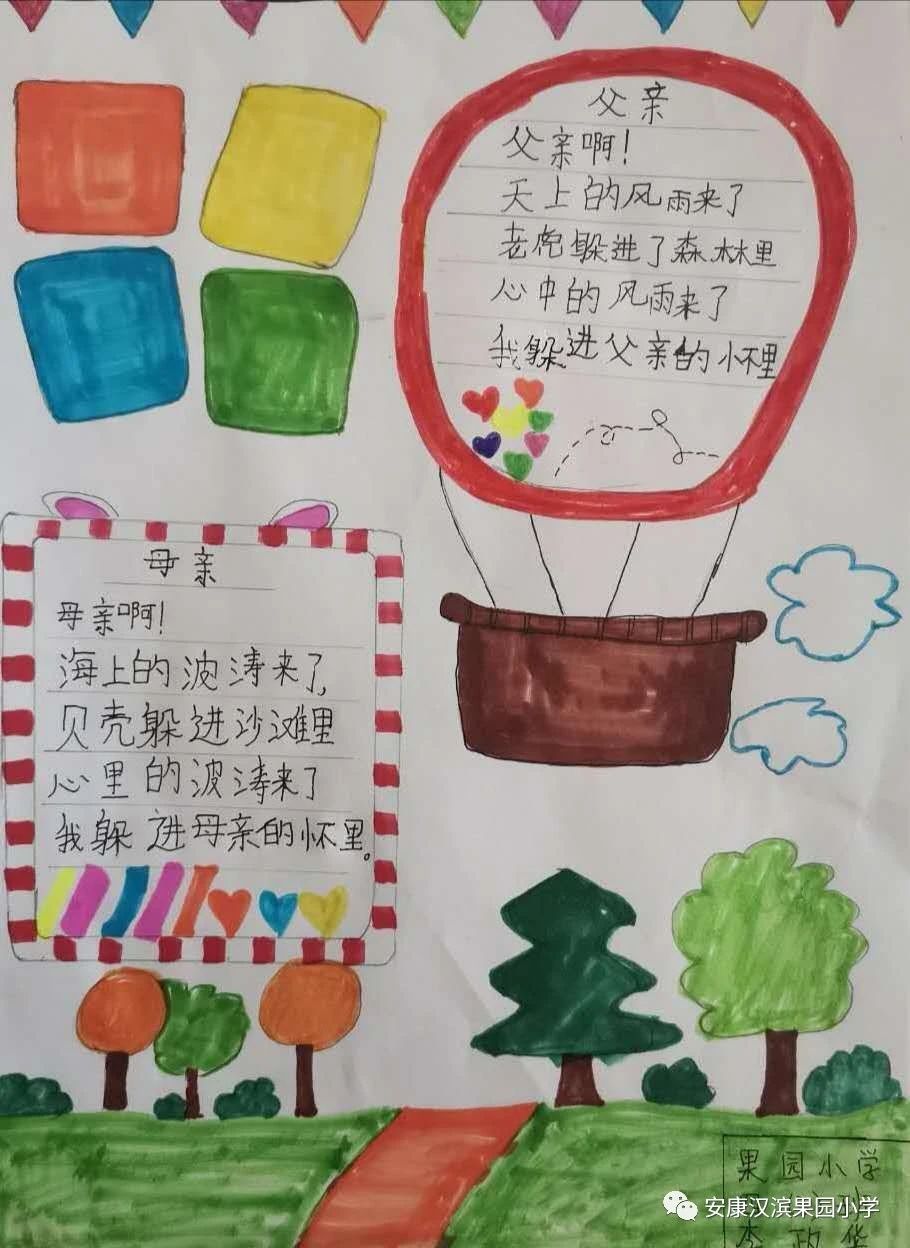 父亲
父亲啊!
天上的风雨来了
老虎躲进了森林里
心中的风雨来了
我躲进父亲的怀里
母亲
母亲啊!
海上的波涛来了,
贝壳躲进沙滩里
心里的波涛来了
我躲进母亲的怀里。
果园小学
安康汉滨果园小学
李政华